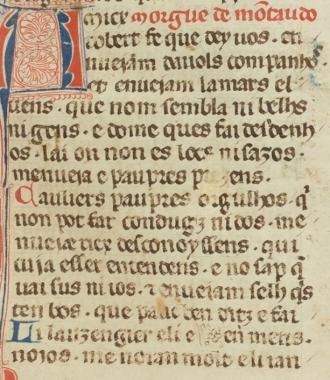 morgue de mōtaudo
robert fe que dey uos · en
nueiam dauols companho ·
et enueiam lamars el
uens · que nom sembla ni belhs
ni gens · e dome ques fai desdenh
os · lai on non es locx ni sazos ·
menueia e paupres p zens ·
Cauliers paupres orgulhos · q̄
non pot far condugz ni dos · me
nueia desconoyssens · qui
cuia esser entendens · e no sap q̄
uai sus ni ios · enueiam selh q̄s
ten bos · que pauc ditz e fai
Li lauzengier eli en mens
noios · me noiran molt eli ian